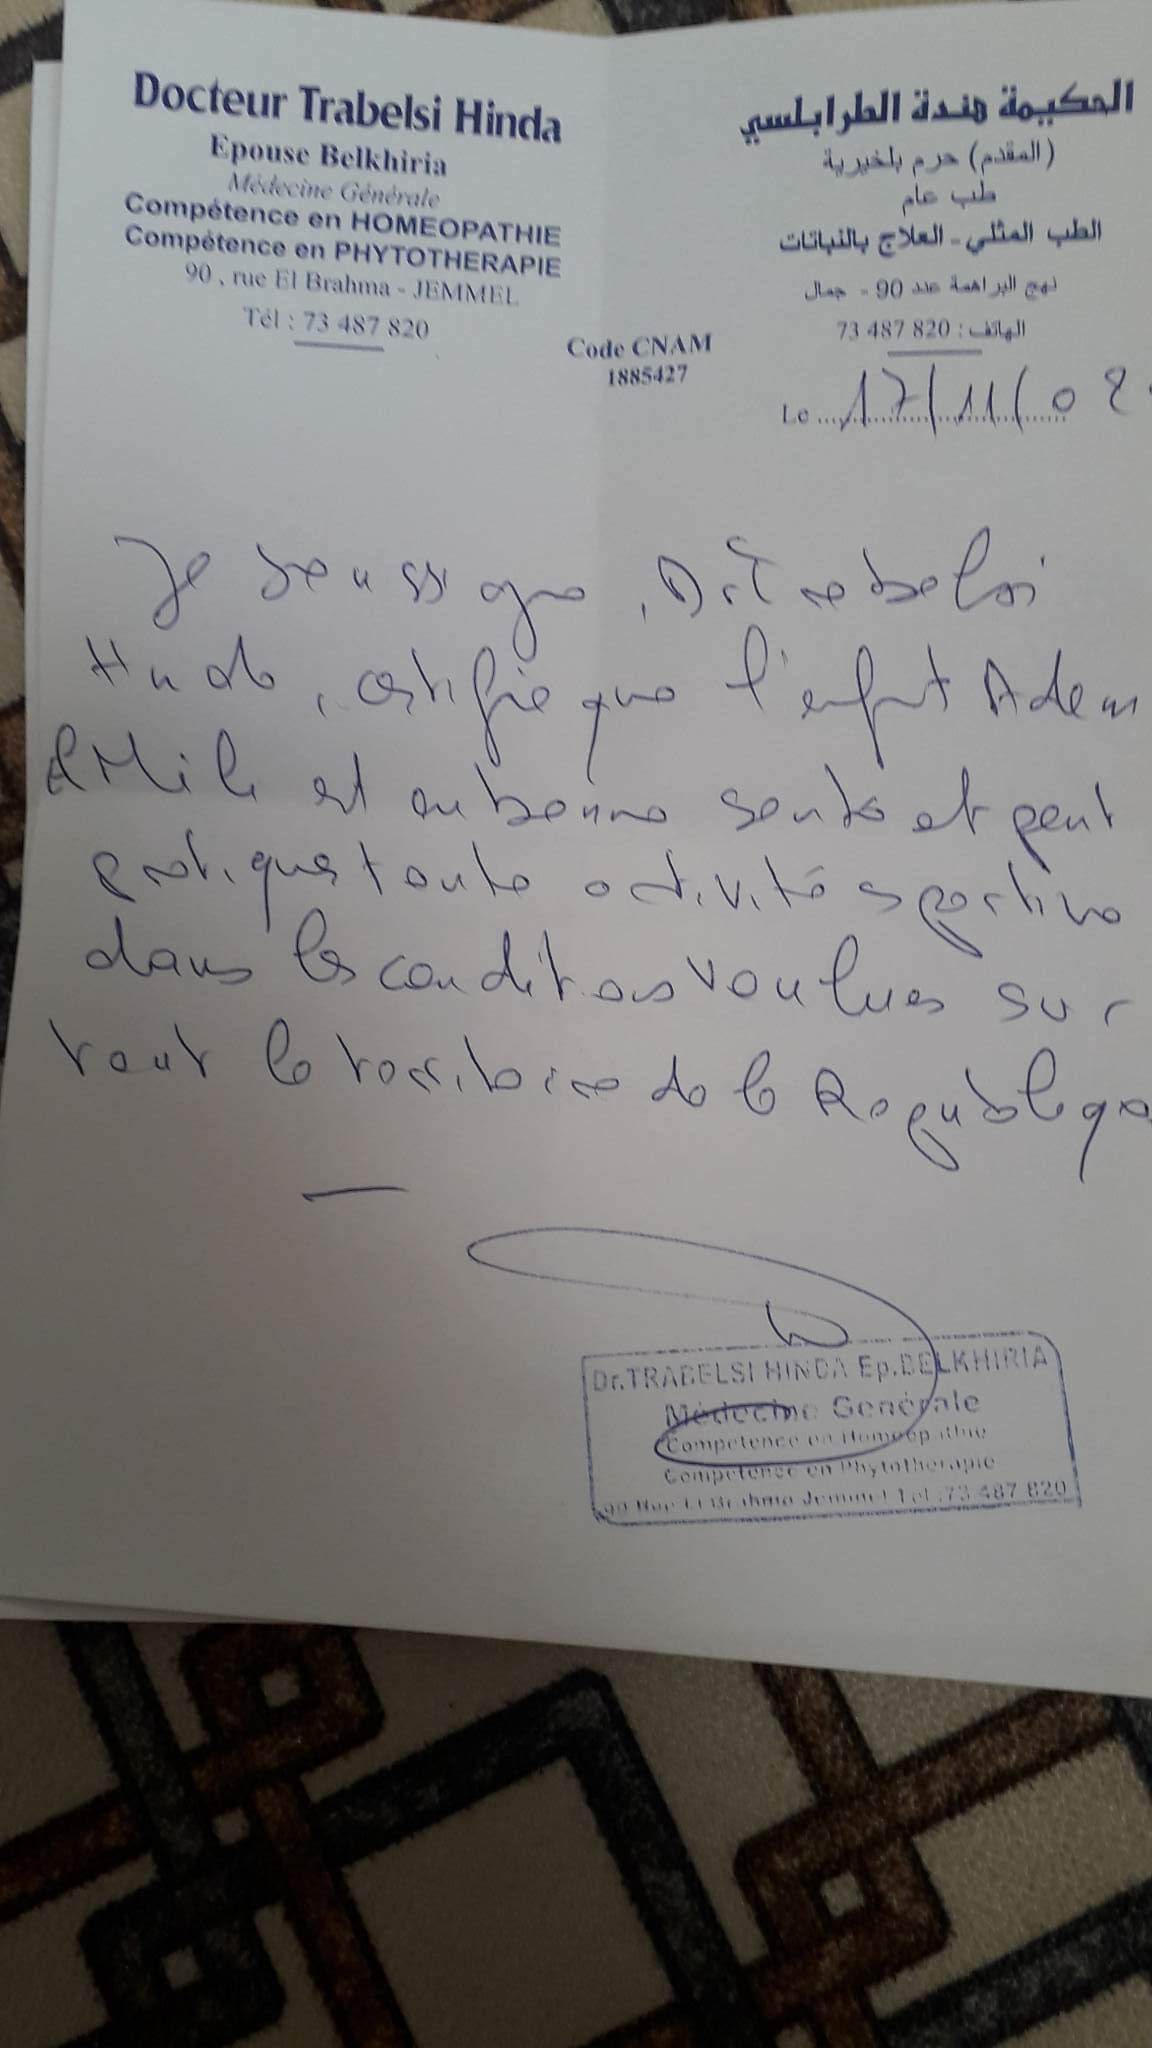 Docteur Trabelsi Hinda
Epouse Belkhiria
Médecine Générale
Compétence en HOMEOPATHIE
Compétence en PHYTOTHERAPIE
90 , rue El Brahma - JEMMEL
Tél : 73 487 820
الحكيمة هندة الطرابلسي
(المقدم) حرم بلخيرية
طب عام
الطب المثلي - العلاج بالنباتات
نهج البراهمة عدد 90 - جمال
الهاتف : 73 487 820
Code CNAM
1885427
Le 17/11/02
Je soussigne, Dr Trabelsi
Hinda, certifie que l'enfant Adem
est en bonne santé et peut
pratiquer toute activité sportive
dans les conditions voulues sur
tout le territoire de la République
Dr.TRABELSI HINDA Ep.BELKHIRIA
Médecine Générale
Compétence en Homéopathie
Compétence en Phytothérapie
90 Rue El Brahma Jemmel Tel :73 487 820